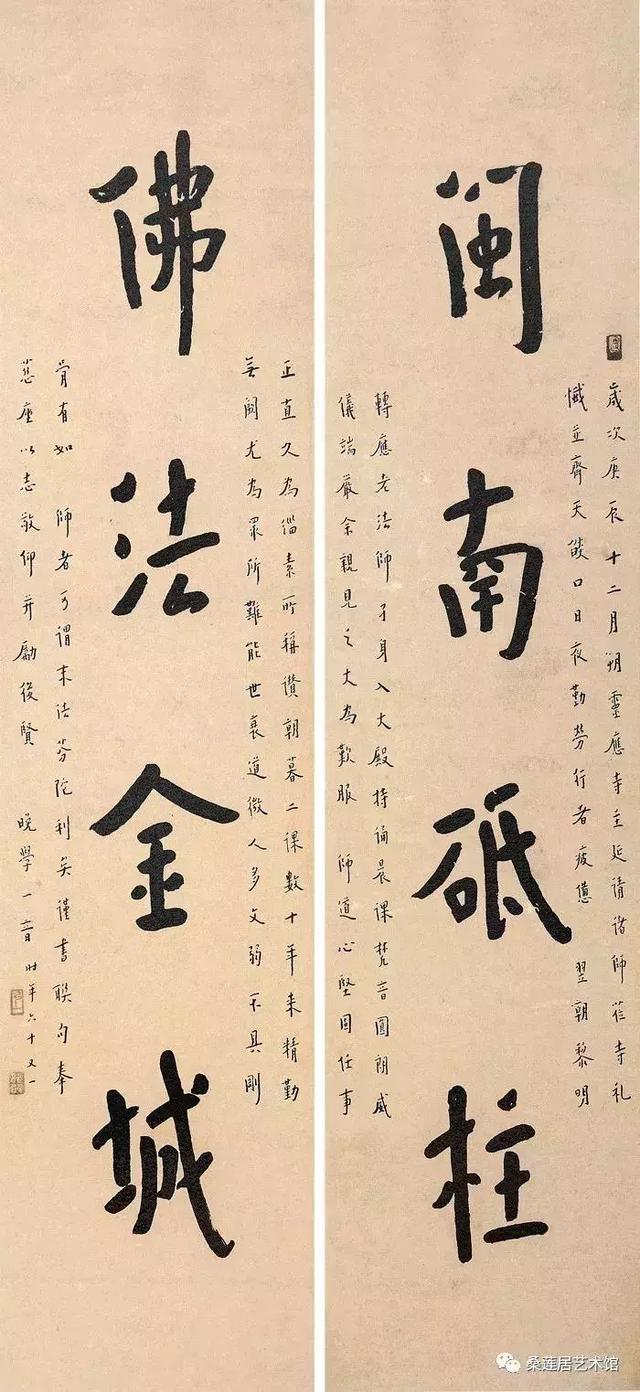 閩南砥柱
歲次庚辰十二月朔靈應寺主延請諸師莅寺礼
懺立齊天燄口日夜勤勞行者疲憊 翌朝黎明
轉應老法師孑身入大殿持誦晨課梵音圓朗威
儀端嚴余親見之大為歎服 師道心堅固任事
佛法金城
正直久為緇素所稱讚朝暮二課數十年来精勤
無闕尤為眾所難能世衰道微人多文弱不具剛
骨有如 師者可謂末法芬陀利矣謹書聯句奉
慈座以志敬仰并勵後賢 晚學一音 时年六十又一
桑莲居艺术馆